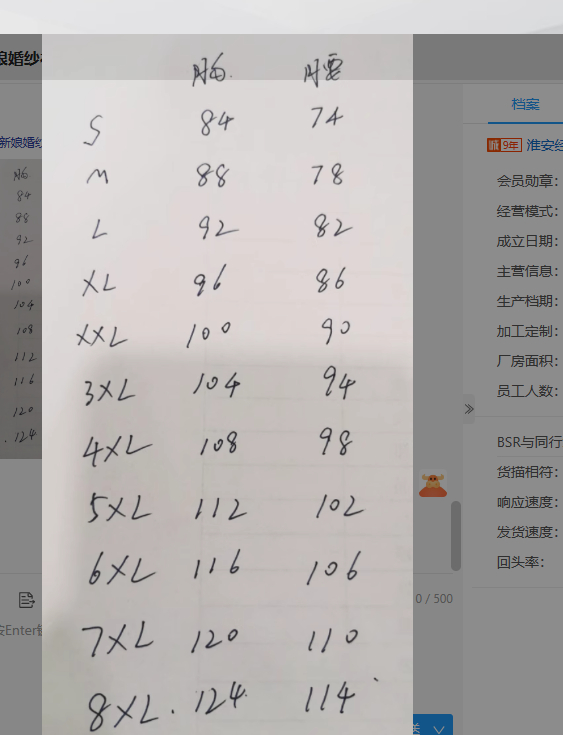 娘婚纱
胸 腰
S 84 74
M 88 78
L 92 82
XL 96 86
XXL 100 90
3XL 104 94
4XL 108 98
5XL 112 102
6XL 116 106
7XL 120 110
8XL. 124. 114
新娘婚纱
胸
84
88
92
96
100
104
108
112
116
120
. 124
按Enter
0 / 500
档案
9年 淮安经
会员勋章：
经营模式：
成立日期：
主营信息：
生产档期：
加工定制：
厂房面积：
员工人数：
BSR与同行
货描相符：
响应速度：
发货速度：
回头率：